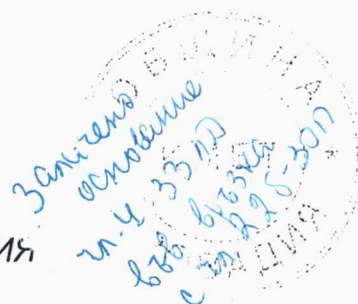 ОБЩИНА
Заличено
основание
чл. 4. 33 ЛД
във връзка
с чл. 22б-ЗОП
ия